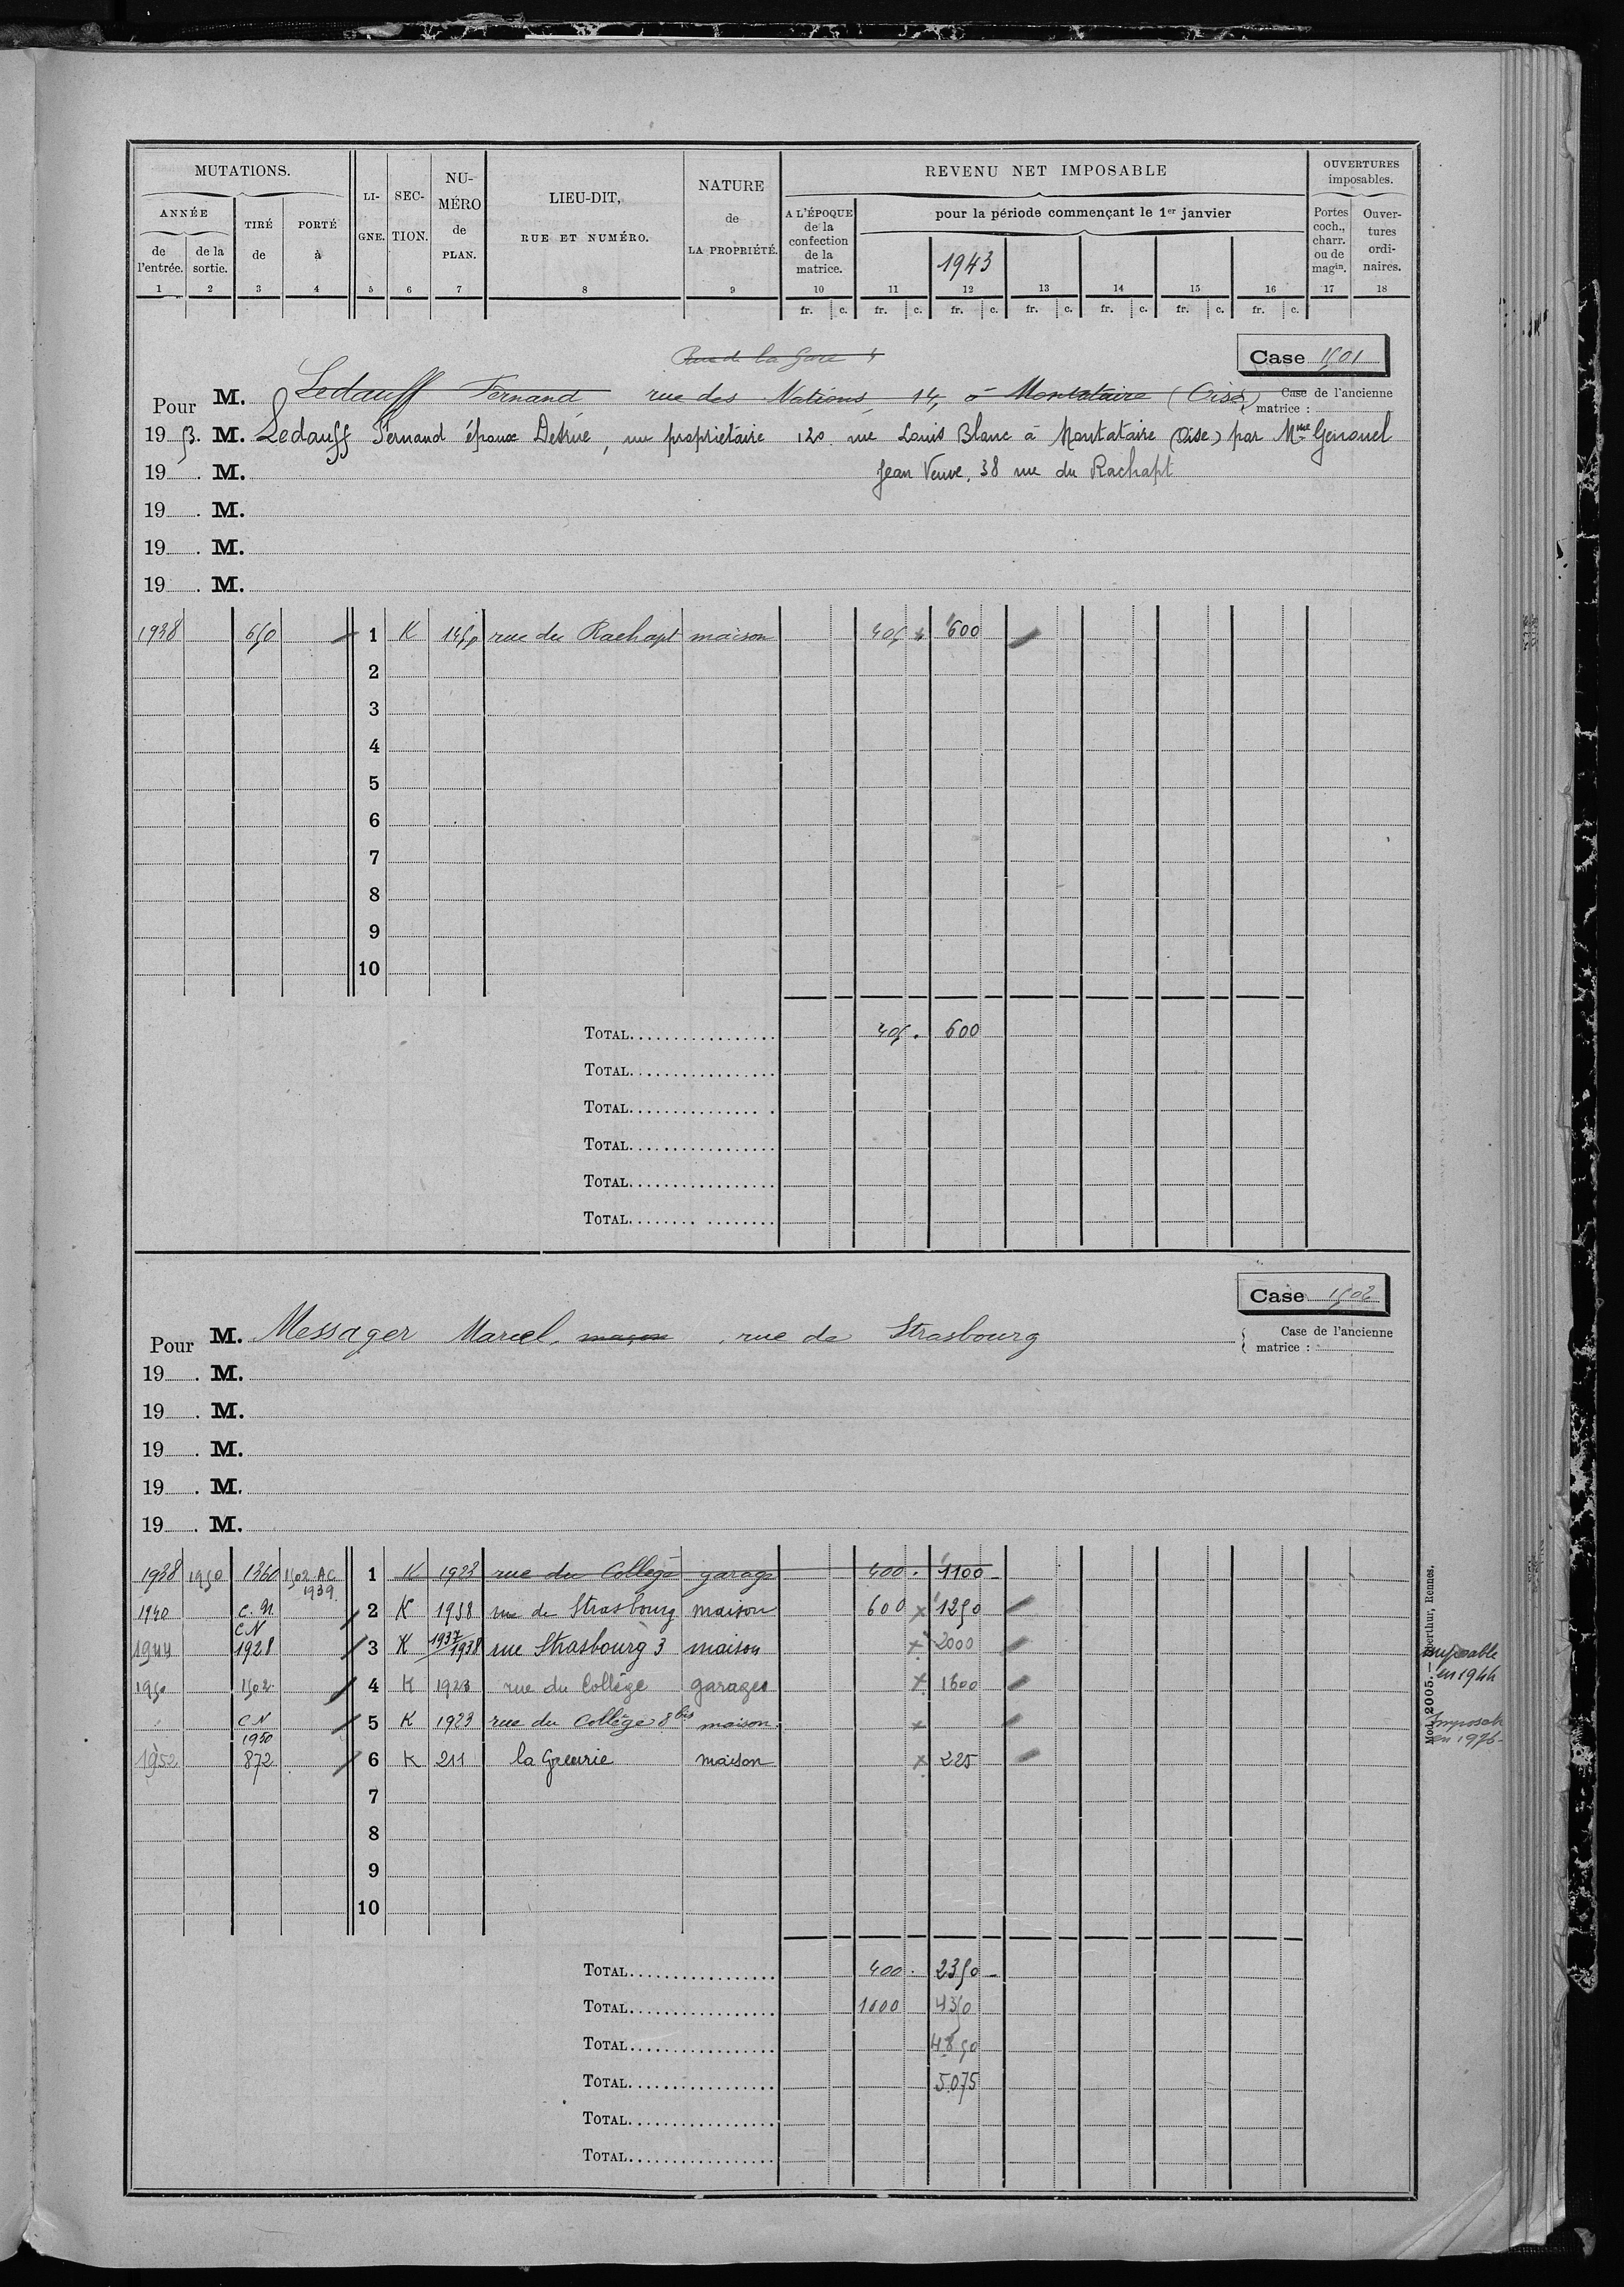 MUTATIONS.
ANNÉE
de l'entrée. de la sortie. TIRÉ de PORTÉ à
LI-GNE. SEC-TION. NU-MÉRO de PLAN.
LIEU-DIT, RUE ET NUMÉRO.
NATURE de LA PROPRIÉTÉ.
REVENU NET IMPOSABLE
A L'ÉPOQUE de la confection de la matrice.
pour la période commençant le 1er janvier
1943
OUVERTURES imposables.
Portes coch., charr. ou de magin. Ouver-tures ordi-naires.
1 2 3 4 5 6 7 8 9 10 11 12 13 14 15 16 17 18
fr. c. fr. c. fr. c. fr. c. fr. c. fr. c. fr. c.
Rue de la Gare
Case 1501
Pour M. Ledauff Fernand rue des Nations, 14, à Montataire (Oise)
Case de l'ancienne matrice :
1953. M. Ledauff Fernand époux Detrue, nu propriétaire 120 rue Louis Blanc à Montataire (Oise) par Mme Genouel
19 . M. Jean Veuve, 38 rue du Rachapt
19 . M.
19 . M.
19 . M.
1938 650 1 K 1459 rue du Rachapt maison 405 600
2
3
4
5
6
7
8
9
10
TOTAL 405. 600
TOTAL
TOTAL
TOTAL
TOTAL
TOTAL
Case 1502
Pour M. Messager Marcel, maçon, rue de Strasbourg
Case de l'ancienne matrice :
19 . M.
19 . M.
19 . M.
19 . M.
19 . M.
1938 1950 1360 1502 AC 1939 1 K 1923 rue du Collège garage 400. 1100
1940 C.N. 2 K 1938 rue de Strasbourg maison 600 x 1250
1944 CN 1928 3 K 1937/1938 rue Strasbourg 3 maison x 2000
imposable en 1944
1950 1502 4 K 1923 rue du Collège garages x 1600
CN 1950 5 K 1923 rue du Collège 8 bis maison x
1952 872 6 K 211 la Greurie maison x 225
7
8
9
10
TOTAL 400. 2350
TOTAL 1000 4350
TOTAL 4850
TOTAL 5075
TOTAL
TOTAL
Mod. 2005. — Oberthur, Rennes.